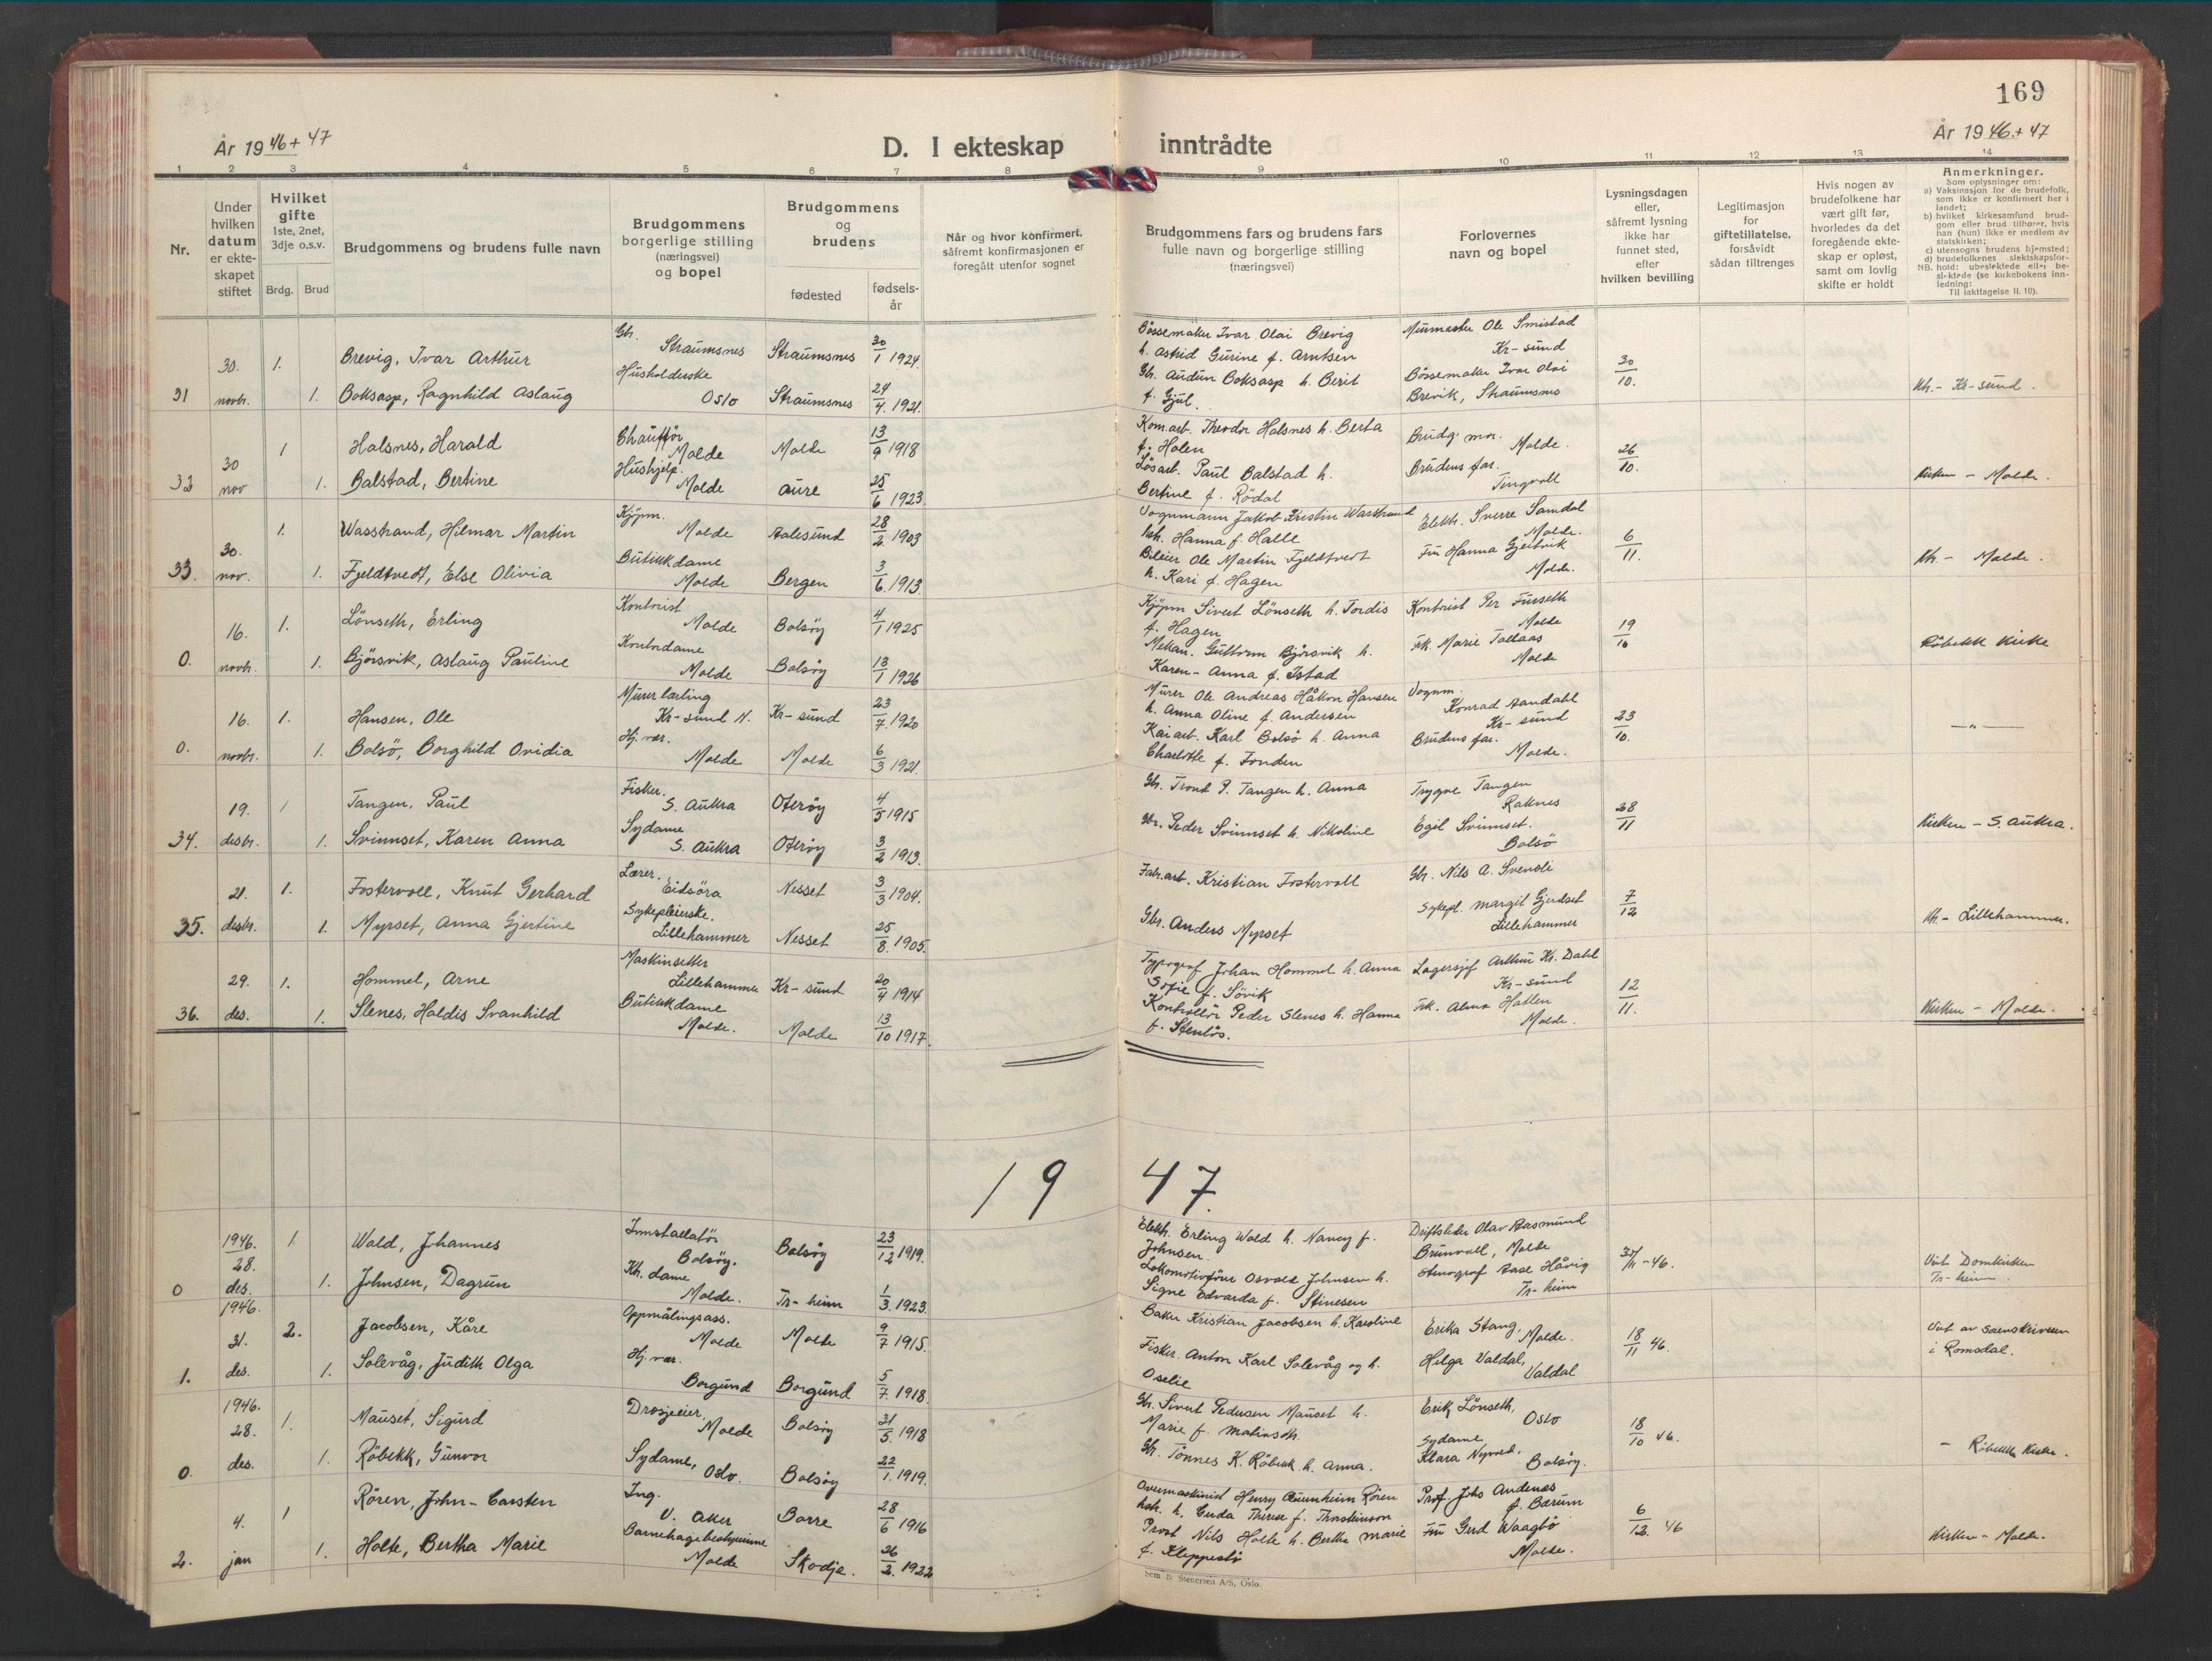 169
År 1946+47
D. I ekteskap inntrådte
År 1946+47
1 2 3 4 5 6 7 8 9 10 11 12 13 14
Nr.
Under hvilken datum er ekteskapet stiftet
Hvilket gifte 1ste, 2net, 3dje o.s.v.
Brdg. Brud
Brudgommens og brudens fulle navn
Brudgommens borgerlige stilling (næringsvei) og bopel
Brudgommens og brudens
fødested
fødselsår
Når og hvor konfirmert, såfremt konfirmasjonen er foregått utenfor sognet
Brudgommens fars og brudens fars fulle navn og borgerlige stilling (næringsvei)
Forlovernes navn og bopel
Lysningsdagen eller, såfremt lysning ikke har funnet sted, efter hvilken bevilling
Legitimasjon for giftetillatelse, forsåvidt sådan tiltrenges
Hvis nogen av brudefolkene har vært gift før, hvorledes da det foregående ekteskap er opløst, samt om lovlig skifte er holdt
Anmerkninger.
Som oplysninger om:
a) Vaksinasjon for de brudefolk, som ikke er konfirmert her i landet;
b) hvilket kirkesamfund brudgom eller brud tilhører, hvis han (hun) ikke er medlem av statskirken;
c) utensogns brudens hjemsted;
d) brudefolkenes slektskapsforhold: ubeslektede eller beslektede (se kirkebokens innledning:
NB. Til iakttagelse II. 10).
31 30. novbr. 1. Brevig, Ivar Arthur Gbr. Straumsnes Straumsnes 30/1 1924. Bössemaker Ivar Olai Brevig h. Astrid Gurine f. Arntsen Murmester Ole Smistad Kr-sund 30/10. Kh. - Kr-sund.
1. Boksasp, Ragnhild Aslaug Husholderske Oslo Straumsnes 24/4. 1921. Gbr. Audun Boksasp h. Berit f. Gjul. Bössemaker Ivar Olai Brevik, Straumsnes
32 30 nov 1 Halsnes, Harald Chauffør Molde Molde 13/9 1918 Kom.arb. Theodor Halsnes h. Berta f. Holen Brudg. mor. Molde. 26/10. Kirken - Molde.
1. Balstad, Bertine Hushjelp. Molde Aure 25/6 1923. Løsarb. Paul Balstad h. Bertine f. Rödal Brudens far. Tingvoll
33. 30. nov. 1. Wasstrand, Hilmar Martin Kjøpm. Molde Aalesund 28/2 1903 Vognmann Jakob Kristin Warstrand h. Hanna f. Halle Elektr. Sverre Samdal Molde. 6/11. Kh - Molde.
1. Fjeldtvedt, Else Olivia Butikkdame Molde Bergen 3/6 1913. Bileier Ole Martin Fjeldtvedt h. Kari f. Hagen Fru Hanna Gjeitvik Molde.
0. 16. novbr. 1. Lönseth, Erling Kontorist Molde Bolsöy 4/1 1925 Kjøpm Sivert Lönseth h. Tordis f. Hagen Kontorist Per Furseth Molde 19/10 Röbekk Kirke
1. Björsvik, Aslaug Pauline Kontordame Molde Bolsöy 13/1 1926 Mekan. Guttorm Björsvik h. Karen-Anna f. Istad Frk. Marie Tollaas Molde
0. 16. novbr. 1. Hansen, Ole Murerlærling Kr-sund N. Kr-sund 23/7 1920 Murer Ole Andreas Håkon Hansen h. Anna Oline f. Andersen Vognm. Konrad Aandahl Kr-sund 23/10. -"-
1. Bolsö, Borghild Ovidia Hj.vær. Molde Molde 6/3 1921. Kaiarb. Karl Bolsö h. Anna Charlotte f. Fonden Brudens far. Molde.
34. 19. desbr. 1 Tangen, Paul Fisker. S. Aukra Oteröy 4/5 1915 Gbr. Trond P. Tangen h. Anna Trygve Tangen Raknes 28/11 Kirken - S. Aukra.
1. Svinnset, Karen Anna Sydame S. Aukra Oteröy 3/2 1913. Gbr. Peder Svinnset h. Nikoline Egil Svinnset. Bolsö
35. 21. desbr. 1. Fostervoll, Knut Gerhard Lærer. Eidsöra Nesset 3/3 1904. Fabr.arb. Kristian Fostervoll Gbr. Nils A. Svensli 7/12 Kh - Lillehammer.
1. Myrset, Anna Gjertine Sykepleierske. Lillehammer Nesset 25/8. 1905. Gbr. Anders Myrset Sykepl. Margit Gjerdset Lillehammer
36. 29. des. 1. Hommel, Arne Maskinsetter Lillehammer Kr-sund 20/4 1914 Typograf Johan Hommel h. Anna Sofie f. Sövik Lagersjef Arthur Kr. Dahl Kr-sund 12/11. Kirken - Molde.
1. Slenes, Haldis Svanhild Butikkdame Molde. Molde 13/10 1917. Kontrollör Peder Slenes h. Hanna f. Stenlös. Frk. Alma Hallen Molde.
1947.
0 1946. 28. des. 1 Wald, Johannes Innstallatör Bolsöy. Bolsöy 23/12 1919. Elektr. Erling Wald h. Nancy f. Johnsen. Driftsleder Olav Aasmund Brunvoll, Molde 30/11-46. Viet Domkirken Tr-heim.
1. Johnsen, Dagrun Kh. dame Molde. Tr-heim 1/3. 1923. Lokomotivförer Osvald Johnsen h. Signe Edvarda f. Stinesen Stenograf Aase Håvig Tr-heim
1. 1946. 31. des. 2. Jacobsen, Kåre Oppmålingsass. Molde Molde 9/7 1915. Baker Kristian Jacobsen h. Karoline Erika Stang, Molde. 18/11 46. Viet av Sorenskriveren i Romsdal.
1. Solevåg, Judith Olga Hj.vær. Borgund Borgund 5/7. 1918. Fisker. Anton Karl Solevåg og h. Oselie Helga Valdal, Valdal
0. 1946. 28. des. 1. Mauset, Sigurd Drosjeeier. Molde Bolsöy 31/5. 1918 Gbr. Sivert Pedersen Mauset h. Marie f. Malinseth. Erik Lönseth, Oslo 18/10 46. - Röbekk Kirke.
1. Röbekk, Gunvor Sydame, Oslo. Bolsöy 22/1. 1919. Gbr. Tönnes K. Röbekk h. Anna. Sydame Klara Nyvoll. Bolsöy.
2. 4. jan 1 Rören, John-Carsten Ing. V. Aker Borre 28/6 1916 Overmaskinist Henry Rören h. Gerda Therese f. Thorkinson Prof. Johs Andenæs Bærum 6/12. 46 Kirken - Molde.
1. Holte, Bertha Marie Barnehagebestyrerinne Molde Skodje. 26/2. 1922 Prost Nils Holte h. Bertha Marie f. Kleppestö Fru Gerd Waagbö Molde.
Sem & Stenersen A/S, Oslo.